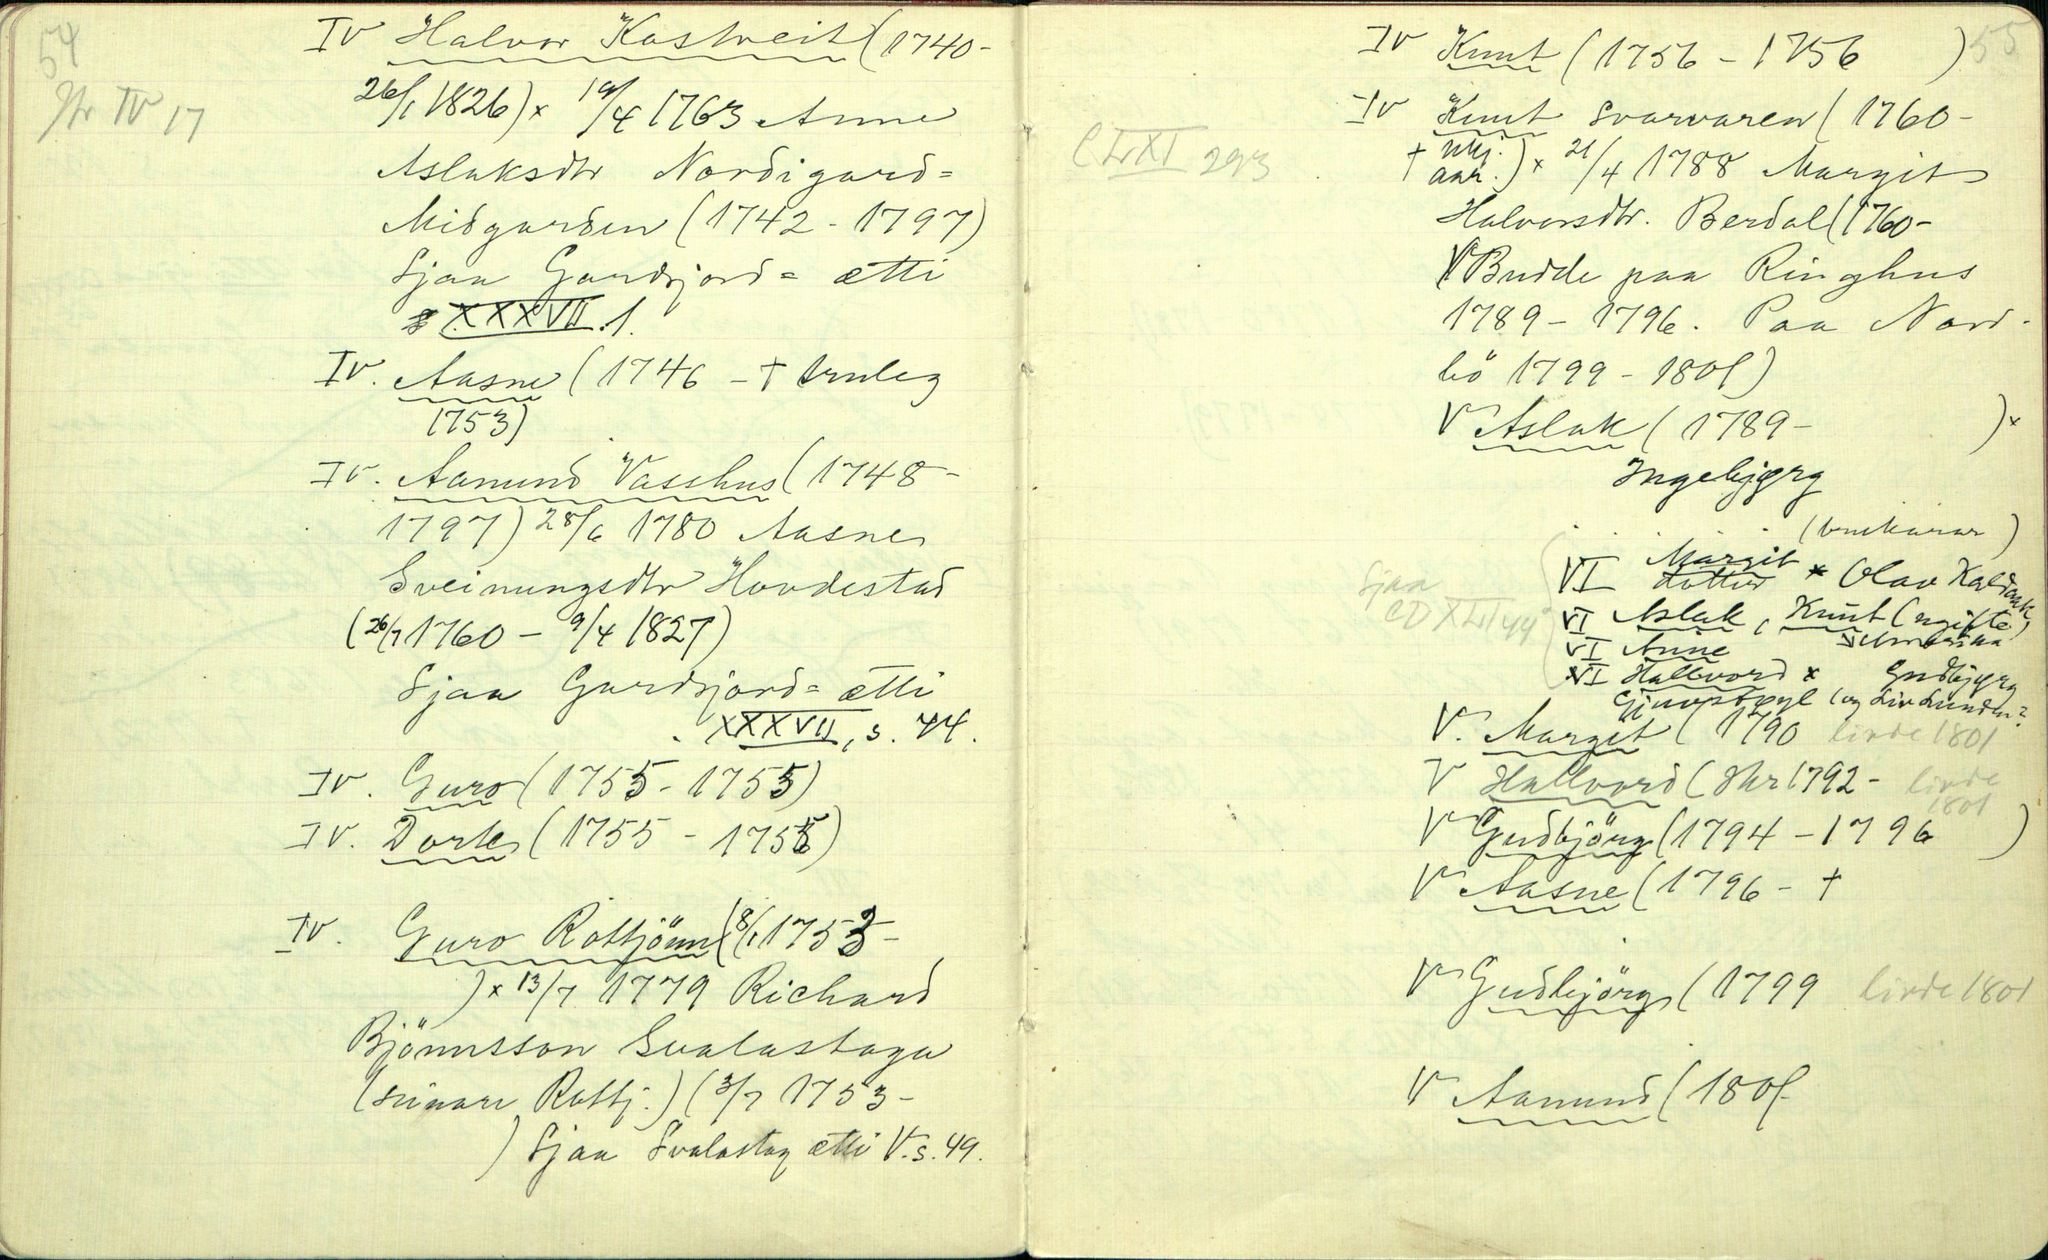 54
IV Halvor Kostveit (1740-
26/1 1826) x 19/4 1763 Anne
Aslaksdtr Nordigard=
Midgarden (1742 - 1797)
Sjaa Gardsjord= ætti
XXXVII. 1.
IV. Aasne (1746 - † truleg
1753)
IV. Aamund Vasshus (1748-
1797) 28/6 1780 Aasne
Sveinungsdtr Hovdestad
(26/7 1760 - 9/4 1827)
Sjaa Gardsjord= ætti
XXXVII, s. 44.
IV. Guro (1755 - 1755)
IV. Dorte (1755 - 1755)
IV. Guro Rottjönn (8/1 1753-
) x 13/7 1779 Richard
Björnsson Svalastoga
(seinare Rottj.) (3/7 1753-
) Sjaa Svalastog ætti V. s. 49.
IV 17
55
IV Knut (1756 - 1756 )
IV Knut Svarvaren (1760-
† ukj. aar.) x 21/4 1788 Margit
Halvorsdtr. Berdal (1760-
Budde paa Ringhus
1789 - 1796. Paa Nord-
bö 1799 - 1801)
V Aslak (1789- ) x
Ingebjørg
VI Margit x Olav
VI Aslak, Knut (ugifte)
VI Anne
VI Hallvord x Gudbjørg
(og Liv Lunden?
Sjaa
V. Margit (1790 livde 1801
V Hallvord (1792 - livde
1801
V Gudbjörg (1794 - 1796 )
V Aasne (1796 - †
V Gudbjörg (1799 livde 1801
V Aamund (1801
293